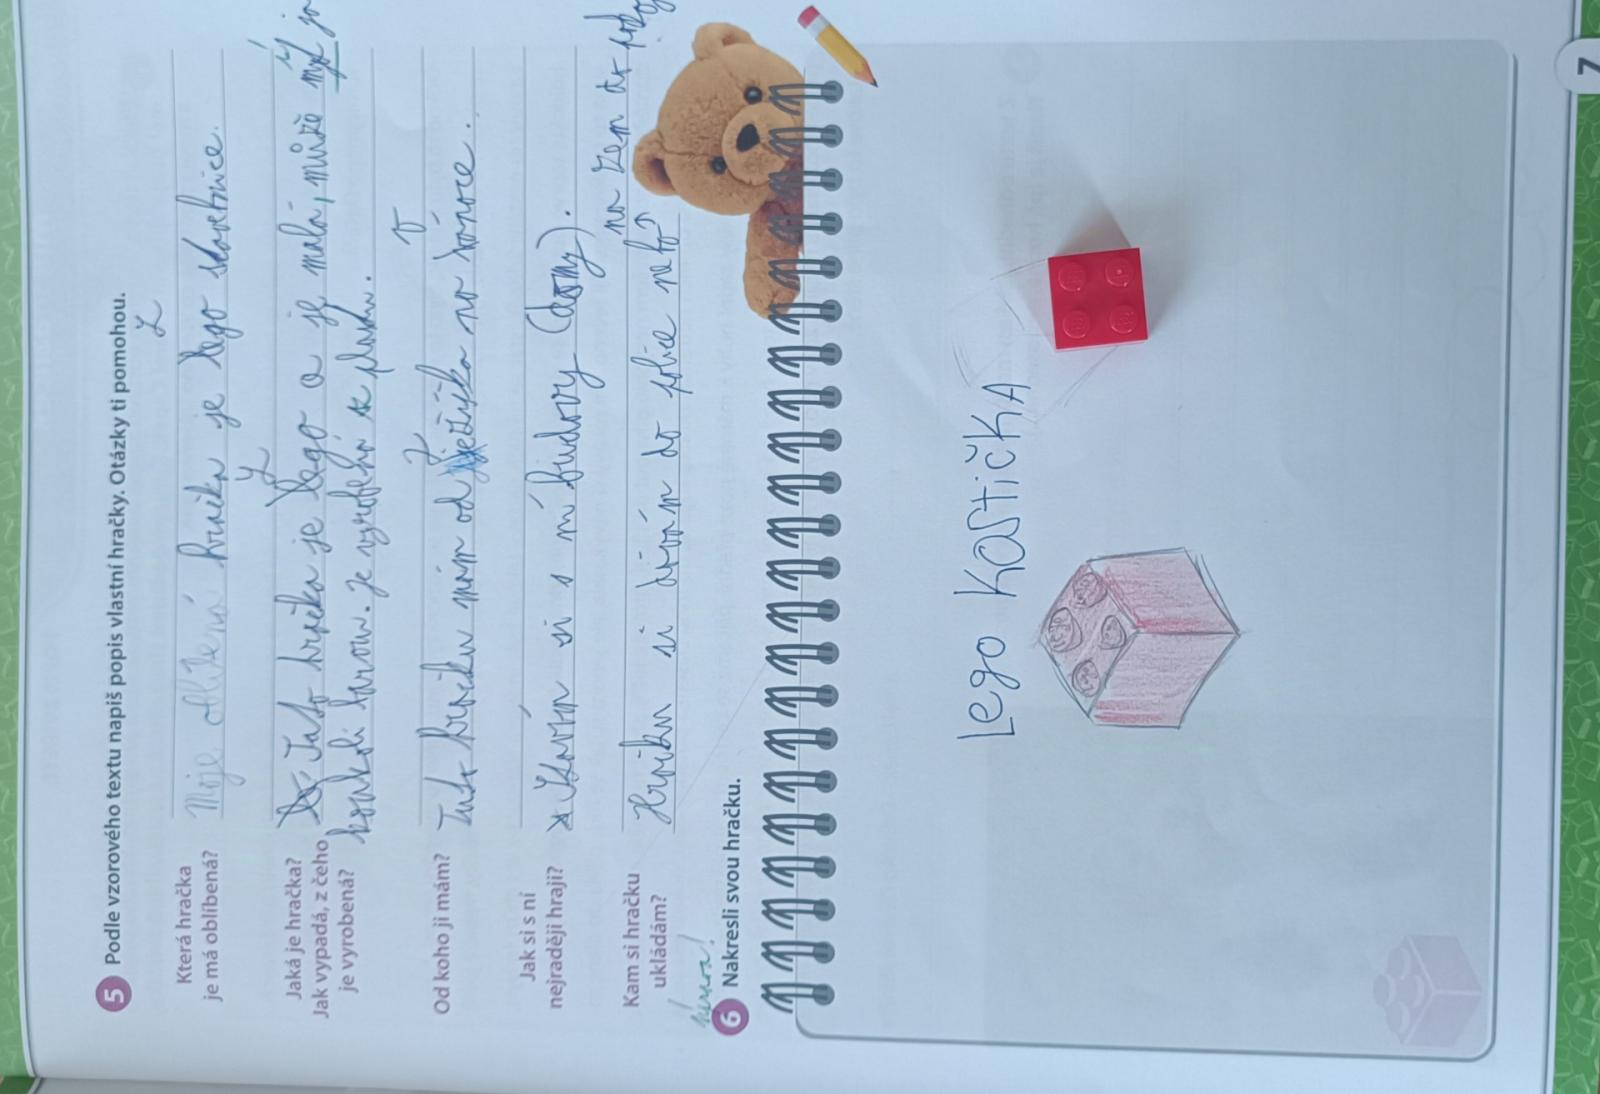 5 Podle vzorového textu napiš popis vlastní hračky. Otázky ti pomohou.
L
Která hračka
je má oblíbená?
Moje oblíbená hračka je lego stavebnice.
L
Jaká je hračka?
Jak vypadá, z čeho
je vyrobená?
Tato hračka je lego a je malá, může
barvou. Je vyrobená z plastu.
Od koho ji mám?
J
V
Tuto hračku mám od ježíška na vánoce.
Jak si s ní
nejraději hraji?
Stavím si s ní budovy (domy).
Kam si hračku
ukládám?
Hračku si dávám do police nebo
na zem do
6 Nakresli svou hračku.
Lego KOSTIČKA
7